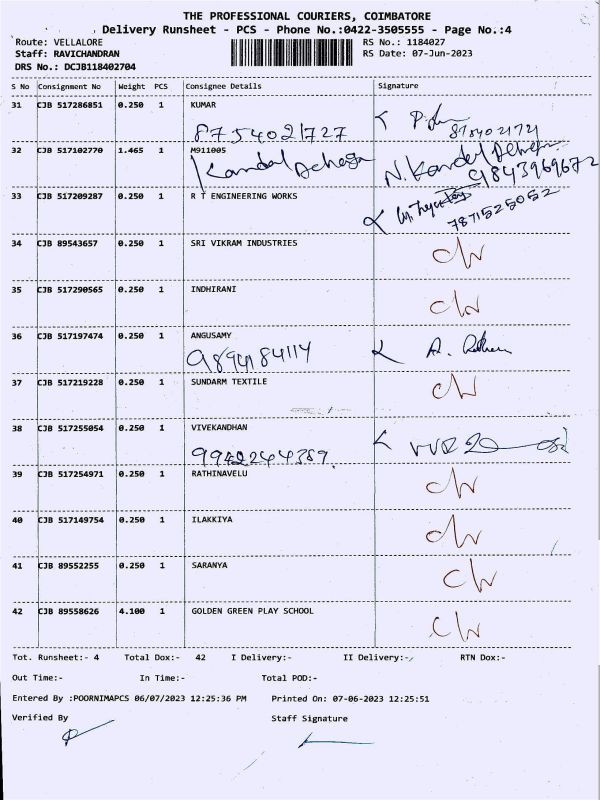 THE PROFESSIONAL COURIERS, COIMBATORE
Delivery Runsheet - PCS - Phone No.:0422-3505555 - Page No.:4
Route: VELLALORE RS No.: 1184027
Staff: RAVICHANDRAN RS Date: 07-Jun-2023
DRS No.: DCJB118402704
S No Consignment No Weight PCS Consignee Details Signature
31 CJB 517286851 0.250 1 KUMAR
8754021727
32 CJB 517102770 1.465 1 M911005
9843969672
33 CJB 517209287 0.250 1 R T ENGINEERING WORKS
7871525052
34 CJB 89543657 0.250 1 SRI VIKRAM INDUSTRIES
35 CJB 517290565 0.250 1 INDHIRANI
36 CJB 517197474 0.250 1 ANGUSAMY
9894184114
37 CJB 517219228 0.250 1 SUNDARM TEXTILE
38 CJB 517255054 0.250 1 VIVEKANDHAN
9942244389
39 CJB 517254971 0.250 1 RATHINAVELU
40 CJB 517149754 0.250 1 ILAKKIYA
41 CJB 89552255 0.250 1 SARANYA
42 CJB 89558626 4.100 1 GOLDEN GREEN PLAY SCHOOL
Tot. Runsheet:- 4 Total Dox:- 42 I Delivery:- II Delivery:- RTN Dox:-
Out Time:- In Time:- Total POD:-
Entered By :POORNIMAPCS 06/07/2023 12:25:36 PM Printed On: 07-06-2023 12:25:51
Verified By Staff Signature